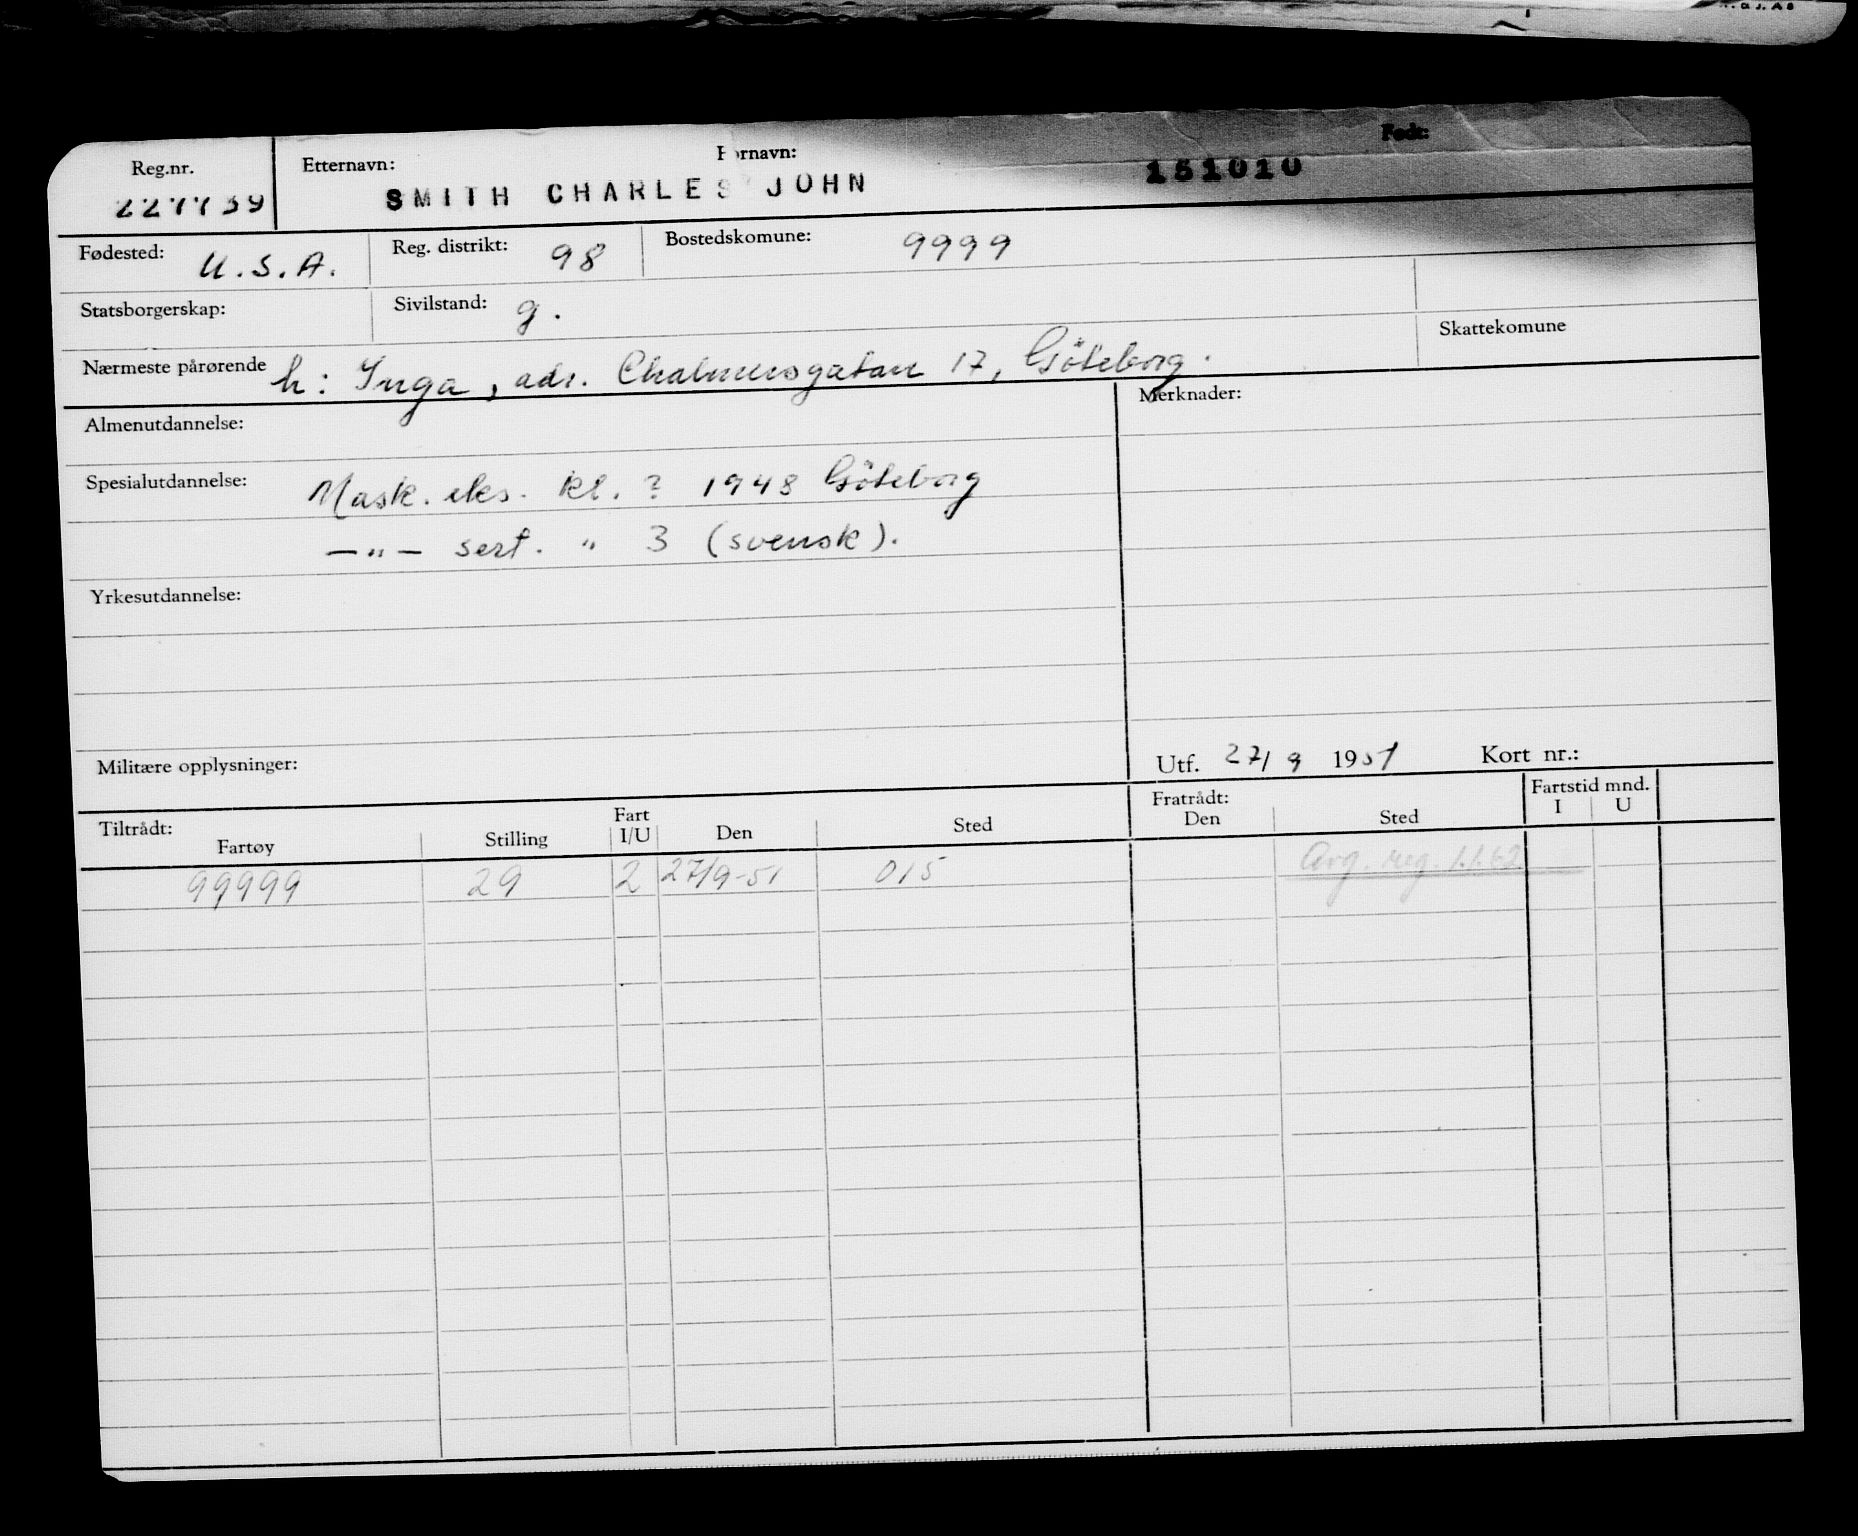 Reg.nr. Etternavn: Fornavn: Født:
SMITH CHARLES JOHN 151010
Fødested: U.S.A. Reg. distrikt: 98 Bostedskomune: 9999
Statsborgerskap: Sivilstand: g. Skattekomune
Nærmeste pårørende h: Inga, adr. Chalmersgatan 17, Göteborg.
Almenutdannelse: Merknader:
Spesialutdannelse: Mask. eks. kl. ? 1948 Göteborg
—"— sert. " 3 (svensk).
Yrkesutdannelse:
Militære opplysninger: Utf. 27/9 1951 Kort nr.:
Tiltrådt: Fratrådt: Fartstid mnd.
Fartøy Stilling Fart I/U Den Sted Den Sted I U
99999 29 2 27/9-51 015 Avg. reg. 1.1.62.